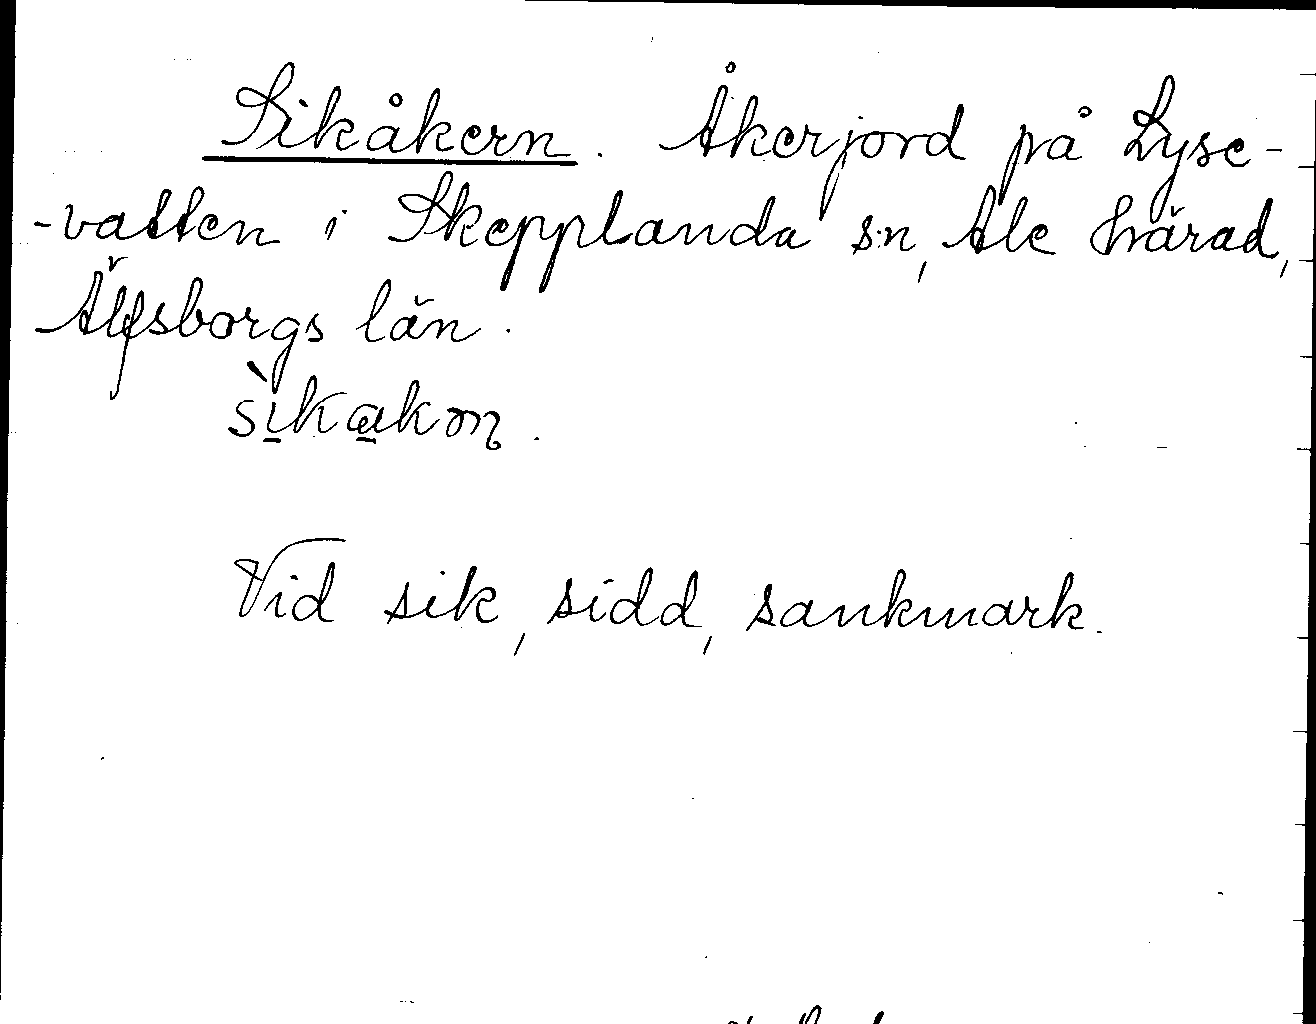 Sikåkern. Åkerjord på Lyse-
-vatten i Skepplanda s:n, Ale härad,
Älfsborgs län.
Vid sik, sidd, sankmark.